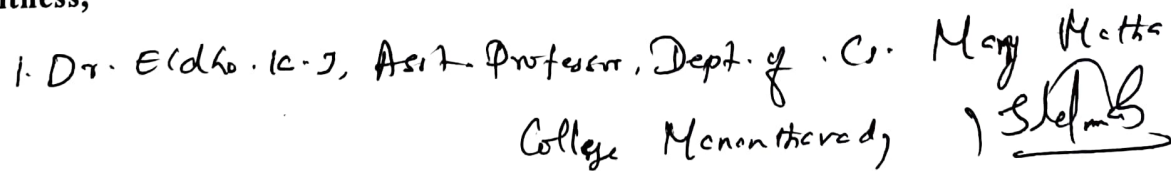 itness,
1. Dr. Eldho. K. J, Asst. Professor, Dept. of. Cs. Mary Matha
College Mananthavady